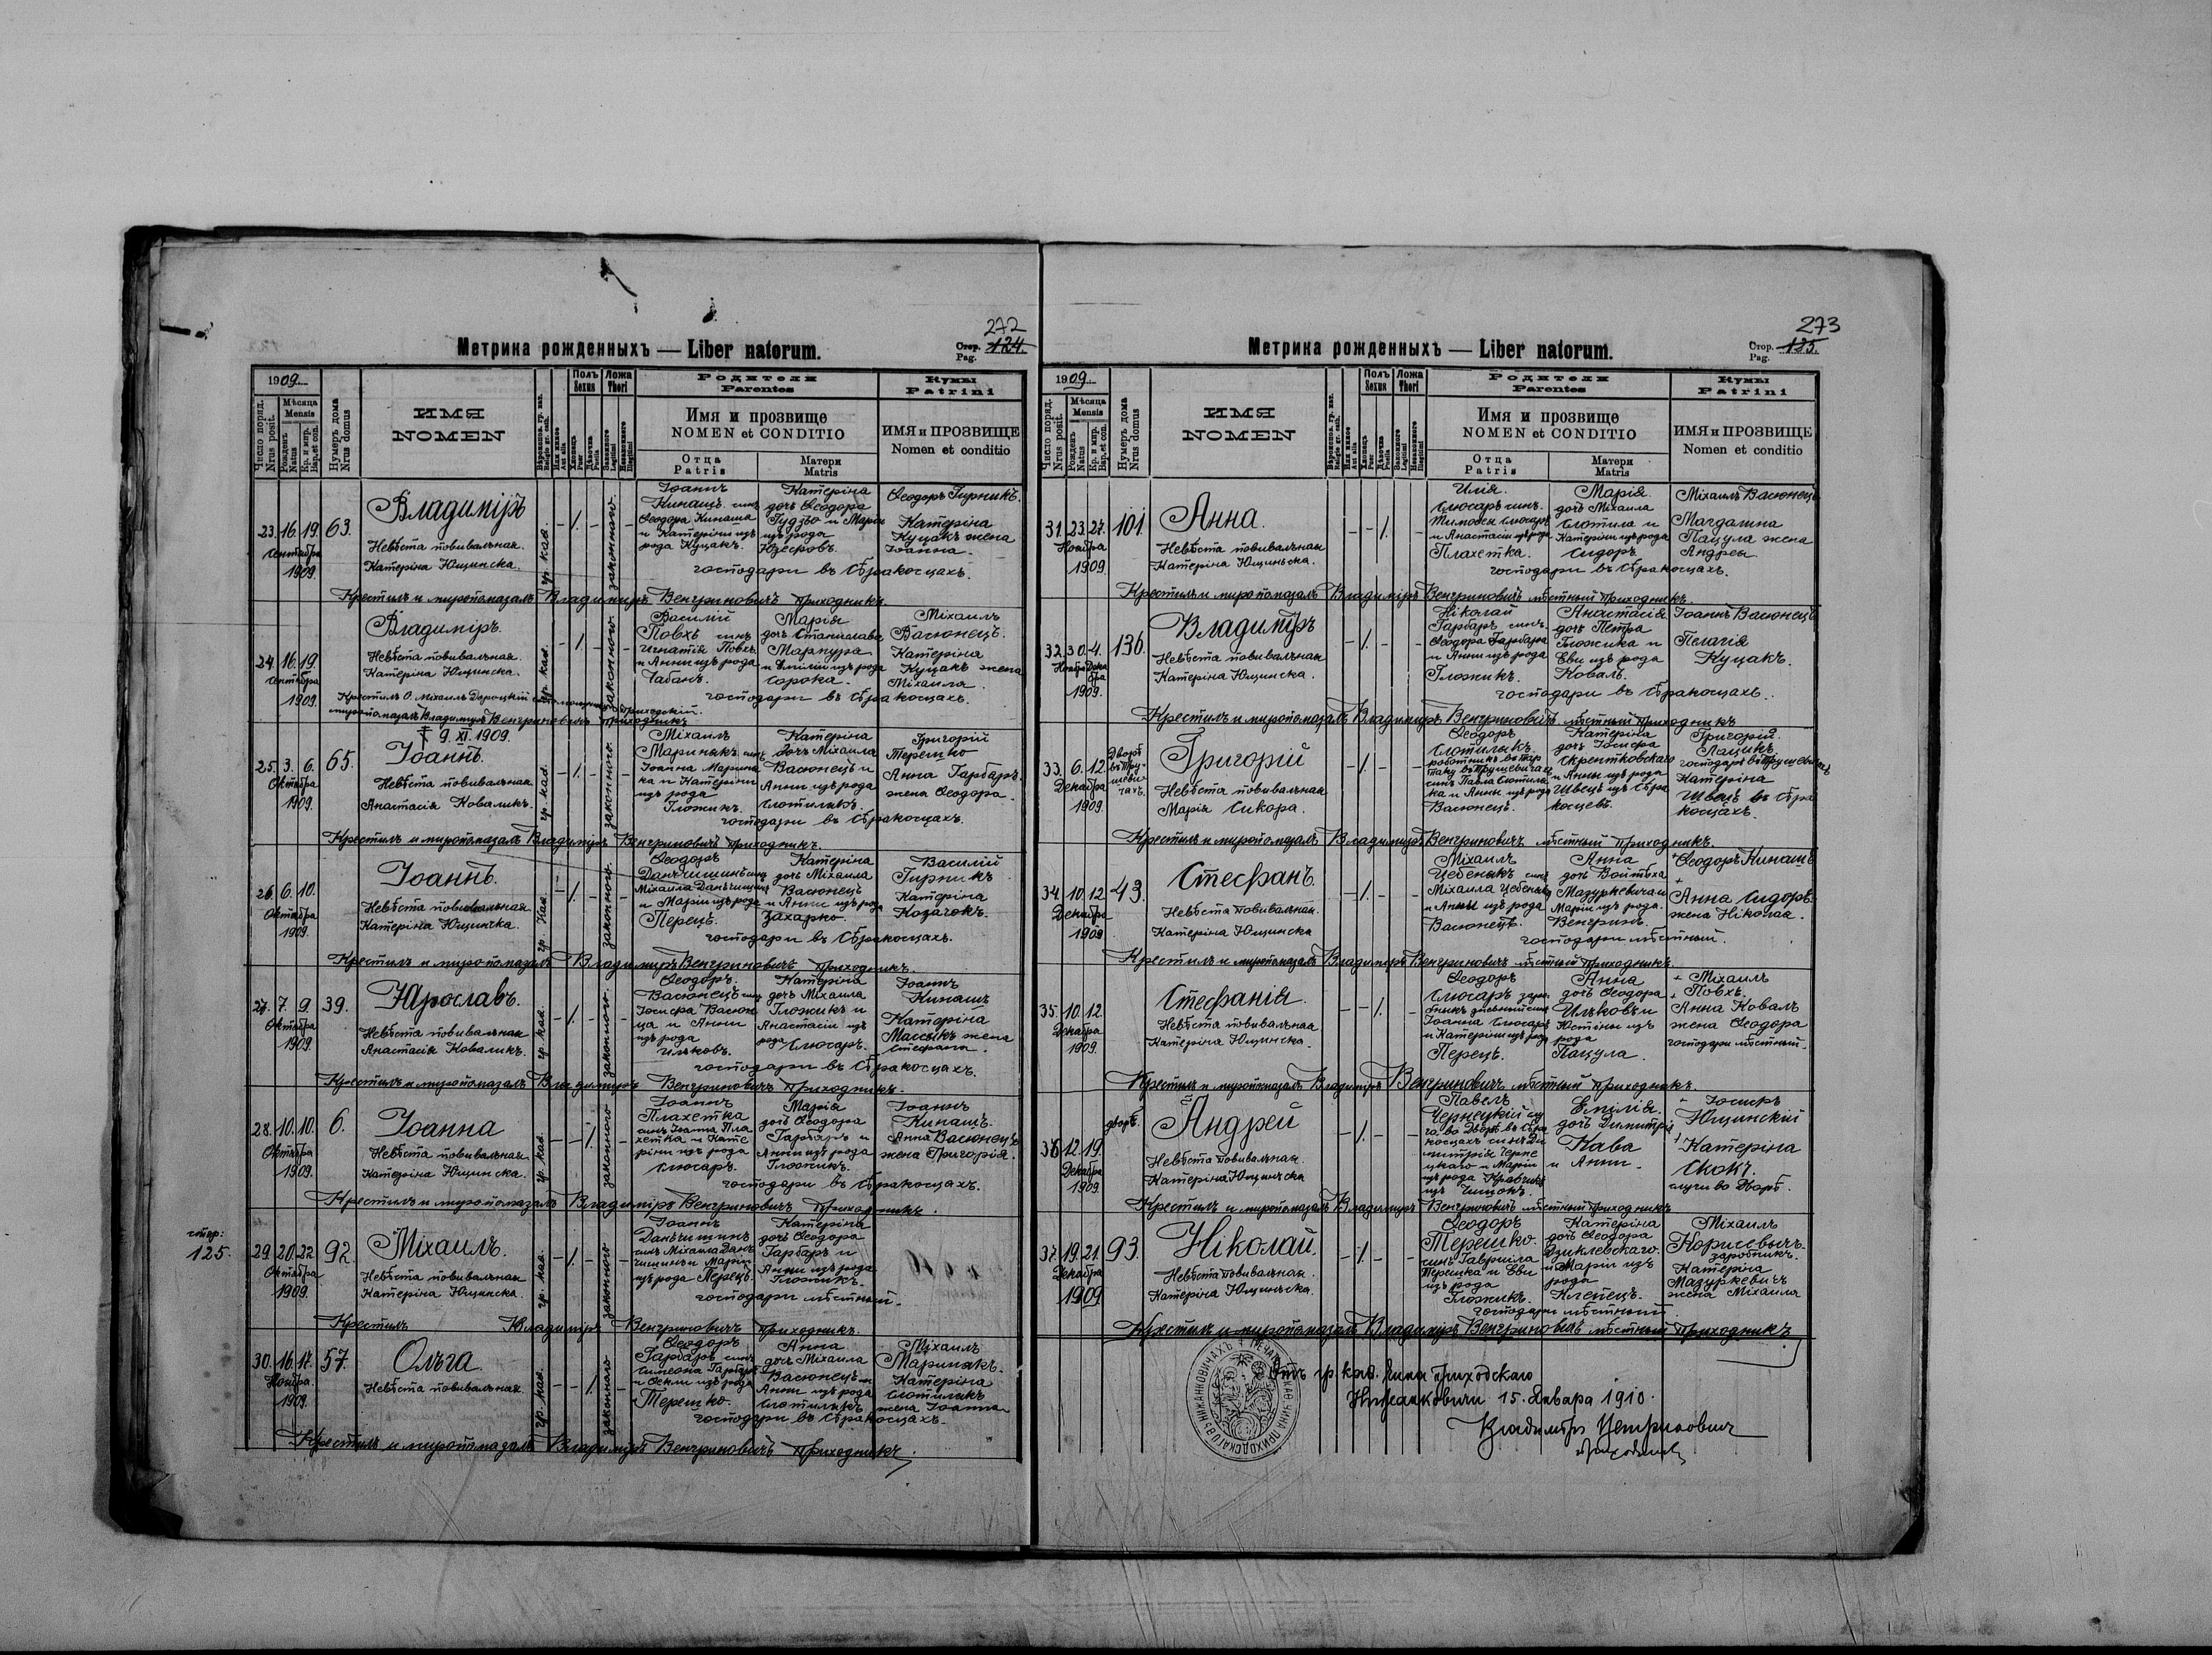 272
Метрика рожденныхъ — Liber natorum.
Стор. 124.
Pag.
1909
Мѣсяца
Mensis
Число поряд.
Nrus posit.
Рожденъ
Natus
Кр. и мпр.
Bap. et con.
Нумеръ дома
Nrus domus
ИМЯ
NOMEN
Полъ
Sexus
Ложа
Thori
Родители
Parentes
Имя и прозвище
NOMEN et CONDITIO
Отца
Patris
Матери
Matris
Кумы
Patrini
ИМЯ и ПРОЗВИЩЕ
Nomen et conditio
23. 16. 19. 63.
Сентября
1909.
Владиміръ
Невѣста повивальная.
Катеріна Ющинска.
гр. кая.
законного.
Іоаннъ
Кинашъ синъ
Ѳеодора Кинаша
и Катеріни изъ
рода Куцакъ.
Катеріна
дочь Ѳеодора
Гудзьо и Маріи
изъ рода
Юзефовъ.
Ѳеодоръ Гирникъ.
Катеріна
Куцакъ жена
Іоанна.
господари въ Обракосцахъ.
Крестилъ и миропомазалъ Владиміръ Венгриновичъ приходникъ.
24. 16. 19.
Сентября
1909.
Владиміръ.
Невѣста повивальная.
Катеріна Ющинска.
Василій
Повхъ синъ
Игнатія Повхъ
и Анни изъ рода
Чабанъ.
Марія
дочь Станислава
Марпура
и Емиліи изъ рода
Сорока.
Міхаилъ
Васюнецъ.
Катеріна
Куцакъ жена
Міхаила.
господари въ Обракосцахъ.
миропомазалъ Владиміръ Венгриновичъ приходникъ
† 9. XI. 1909
25. 3. 6. 65.
Октября
1909.
Іоаннъ.
Невѣста повивальная
Анастасія Коваликъ.
Міхаилъ
Маринякъ синъ
Іоанна Марина
ка и Катеріни
изъ рода
Гложикъ.
Катеріна
дочь Міхаила
Васюнецъ и
Анни изъ рода
Слотилякъ.
Григорій
Терешко
Анна Гарбаръ
жена Ѳеодора.
господари въ Обракосцахъ.
Крестилъ и миропомазалъ Владиміръ Венгриновичъ приходникъ.
26. 6. 10.
Октября
1909.
Іоаннъ.
Невѣста повивальная
Катеріна Ющинска.
Ѳеодоръ
Данчишинъ синъ
Міхаила Данчишинъ
и Маріи изъ рода
Перецъ.
Катеріна
дочь Міхаила
Васюнецъ
и Анни изъ рода
Захарко.
Василій
Гирникъ
Катеріна
Козачокъ.
господари въ Обракосцахъ.
Крестилъ и миропомазалъ Владиміръ Венгриновичъ приходникъ.
27. 7. 9. 39.
Октября
1909.
Юрославъ.
Невѣста повивальная
Анастасія Коваликъ.
Ѳеодоръ.
Васюнецъ синъ
Іосифа Васюн
ца и Анни
изъ рода
Ильковъ.
Катеріна
дочь Міхаила
Гложикъ и
Анастасіи изъ
рода
Слюсаръ.
Іоаннъ
Кинашъ
Катеріна
Массикъ жена
Стефана.
господари въ Обракосцахъ.
Крестилъ и миропомазалъ Владиміръ Венгриновичъ приходникъ.
28. 10. 10. 6.
Октября
1909.
Іоанна
Невѣста повивальная
Катеріна Ющинска.
Іоаннъ
Плахетка
синъ Іоанна Пла
хетка и Кате
ріни изъ рода
Слюсаръ.
Марія
дочь Ѳеодора
Гарбаръ и
Анни изъ рода
Гложикъ.
Іоаннъ
Кинашъ.
Анна Васюнецъ
жена Григорія.
господари въ Обракосцахъ.
Крестилъ и миропомазалъ Владиміръ Венгриновичъ приходникъ.
стор:
125.
29. 20. 22. 92.
Октября
1909.
Міхаилъ.
Невѣста повивальная
Катеріна Ющинска.
Іоаннъ
Данчишинъ
синъ Міхаила Дан
чишинъ и Маріи
изъ рода Перецъ.
Катеріна
дочь Ѳеодора
Гарбаръ и
Анни изъ рода
Гложикъ.
господари мѣстный.
Крестилъ Владиміръ Венгриновичъ приходникъ.
30. 16. 17. 57.
Ноября.
1909.
Ольга
Невѣста повивальная.
Ѳеодоръ
Гарбаръ синъ
Симеона Гарбара
и Ѳекли изъ рода
Терешко.
Анна
дочь Міхаила
Васюнецъ и
Анни изъ рода
Слотилякъ
Міхаилъ
Маринякъ.
Катеріна
Слотилякъ
жена Іоанна
господари въ Обракосцахъ.
Крестилъ и миропомазалъ Владиміръ Венгриновичъ приходникъ.
273
Метрика рожденныхъ — Liber natorum.
Стор. 125.
Pag.
1909
Мѣсяца
Mensis
Число поряд.
Nrus posit.
Рожденъ
Natus
Кр. и мпр.
Bap. et con.
Нумеръ дома
Nrus domus
ИМЯ
NOMEN
Полъ
Sexus
Ложа
Thori
Родители
Parentes
Имя и прозвище
NOMEN et CONDITIO
Отца
Patris
Матери
Matris
Кумы
Patrini
ИМЯ и ПРОЗВИЩЕ
Nomen et conditio
31. 23. 27. 101.
Ноября
1909.
Анна.
Невѣста повивальная
Катеріна Ющинська.
Илія.
Слюсаръ синъ.
Тимофея Слюсаръ
и Анастасіи изъ рода
Плахетка.
Марія.
дочь Міхаила
Слотила и
Катеріни изъ рода
Сидоръ.
Міхаилъ Васюнецъ
Магдалина
Пацула жена
Андрея.
господари въ Обракосцахъ.
Крестилъ и миропомазалъ Владиміръ Венгриновичъ мѣстный приходникъ.
32. 30. 4. 136.
Ноября Дека
бра
1909.
Владиміръ
Невѣста повивальная
Катеріна Ющинска.
Ніколай
Гарбаръ синъ.
Ѳеодора Гарбара
и Анни изъ рода
Гложикъ.
Анастасія
дочь Петра
Гложика и
Еви изъ рода
Коваль.
Іоаннъ Васюнецъ
Пелагія
Куцакъ.
господари въ Обракосцахъ.
Крестилъ и миропомазалъ Владиміръ Венгриновичъ мѣстный приходникъ
33. 6. 12.
Декабря
1909.
Дворъ
въ Тру-
шеви-
чахъ.
Григорій
Невѣста повивальная
Марія Сикора.
Ѳеодоръ
Слотилякъ.
Васюнецъ.
Катеріна
дочь Іосифа
Скрентковскаго
и Анны изъ рода
Швецъ изъ Обра
косцевъ.
Григорій.
Лацикъ
господарь въ Трушевичахъ
Катеріна
Швецъ въ Обра
косцахъ.
Крестилъ и миропомазалъ Владиміръ Венгриновичъ мѣстный приходникъ.
34. 10. 12. 43.
Декабря
1909
Стефанъ.
Невѣста повивальная.
Катеріна Ющинска
Міхаилъ
Цебенякъ синъ
Міхаила Цебеняка
и Анны изъ рода
Васюнецъ.
Анна
дочь Войтѣха
Мазуркевича и
Маріи изъ рода.
Венгринъ.
Ѳеодоръ Кинашъ
Анна Сидоръ
жена Ніколая.
господари мѣстный.
Крестилъ и миропомазалъ Владиміръ Венгриновичъ мѣстный приходникъ.
35. 10. 12.
Декабря
1909.
Стефанія.
Невѣста повивальная
Катеріна Ющинска.
Ѳеодоръ
Слюсаръ зароб-
Іоанна Слюсаръ
и Катеріни изъ рода
Перецъ.
Анна
дочь Ѳеодора
Ильковъ и
Юстіны изъ
рода
Пацула.
+ Міхаилъ
+ Повхъ.
Анна Коваль
жена Ѳеодора
господари мѣстный.
Крестилъ и миропомазалъ Владиміръ Венгриновичъ мѣстный приходникъ.
36. 12. 19.
Декабря
1909.
дворъ.
Андрей
Невѣста повивальная.
Катеріна Ющинська
Павелъ
Чернецкій слу
га во Дворѣ въ Обра
косцахъ синъ Ди
митрія Черне
цкаго и Маріи
изъ рода Кравчикъ
Емілія.
дочь Димитрія
Кава
и Анни.
Іосифъ
Ющинскій
Катеріна
Скокъ.
слуги во Дворѣ.
Крестилъ и миропомазалъ Владиміръ Венгриновичъ мѣстный приходникъ
37. 19. 21. 93.
Декабря
1909
Ніколай.
Невѣста повивальная.
Катеріна Ющинська.
Ѳеодоръ
Терешко.
синъ Гавриіла
Терешка и Еви
изъ рода
Гложикъ.
Катеріна
дочь Ѳеодора
Дзиклевскаго.
и Маріи изъ
рода
Клепецъ.
Міхаилъ
Корисевычъ.
заробникъ.
Катеріна
Мазуркевичъ
жена Міхаила
господари мѣстный.
Крестилъ и миропомазалъ Владиміръ Венгриновичъ мѣстный приходникъ.
Отъ гр. каѳ. чина приходскаго
Нижанковичи 15. Января 1910.
Владиміръ Венгриновичъ
приходникъ